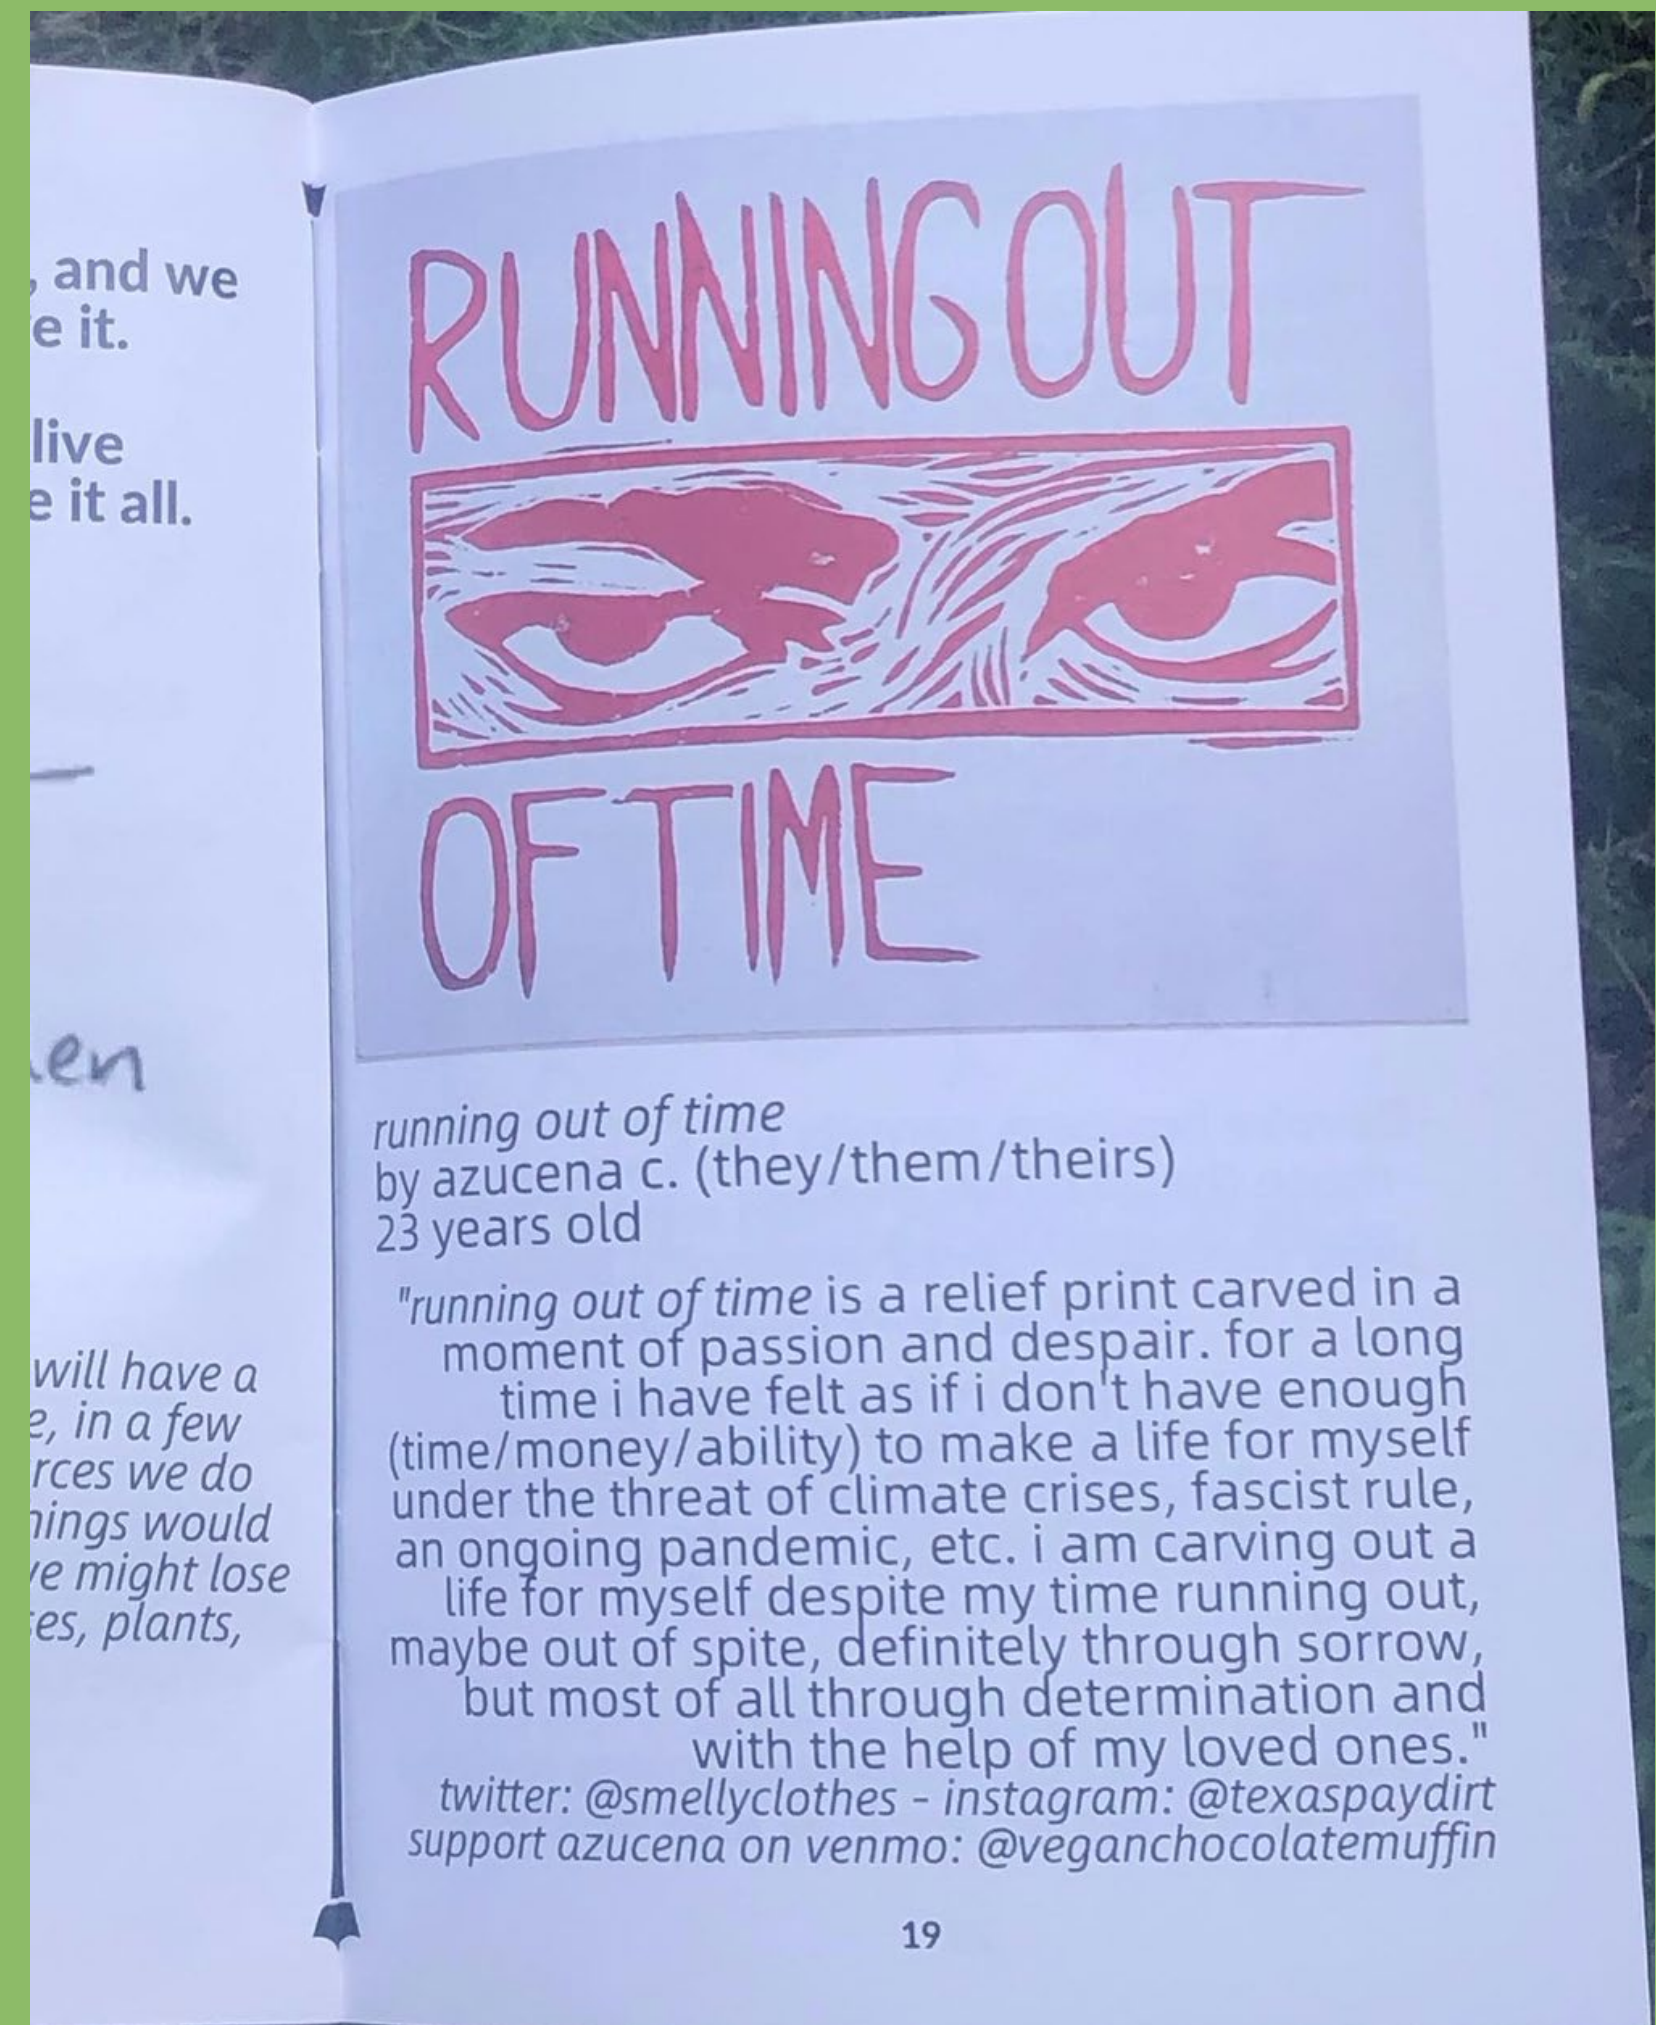 , and we
e it.
live
e it all.
en
will have a
e, in a few
rces we do
ings would
e might lose
es, plants,
RUNNING OUT
OF TIME
running out of time
by azucena c. (they/them/theirs)
23 years old
"running out of time is a relief print carved in a
moment of passion and despair. for a long
time i have felt as if i don't have enough
(time/money/ability) to make a life for myself
under the threat of climate crises, fascist rule,
an ongoing pandemic, etc. i am carving out a
life for myself despite my time running out,
maybe out of spite, definitely through sorrow,
but most of all through determination and
with the help of my loved ones."
twitter: @smellyclothes - instagram: @texaspaydirt
support azucena on venmo: @veganchocolatemuffin
19